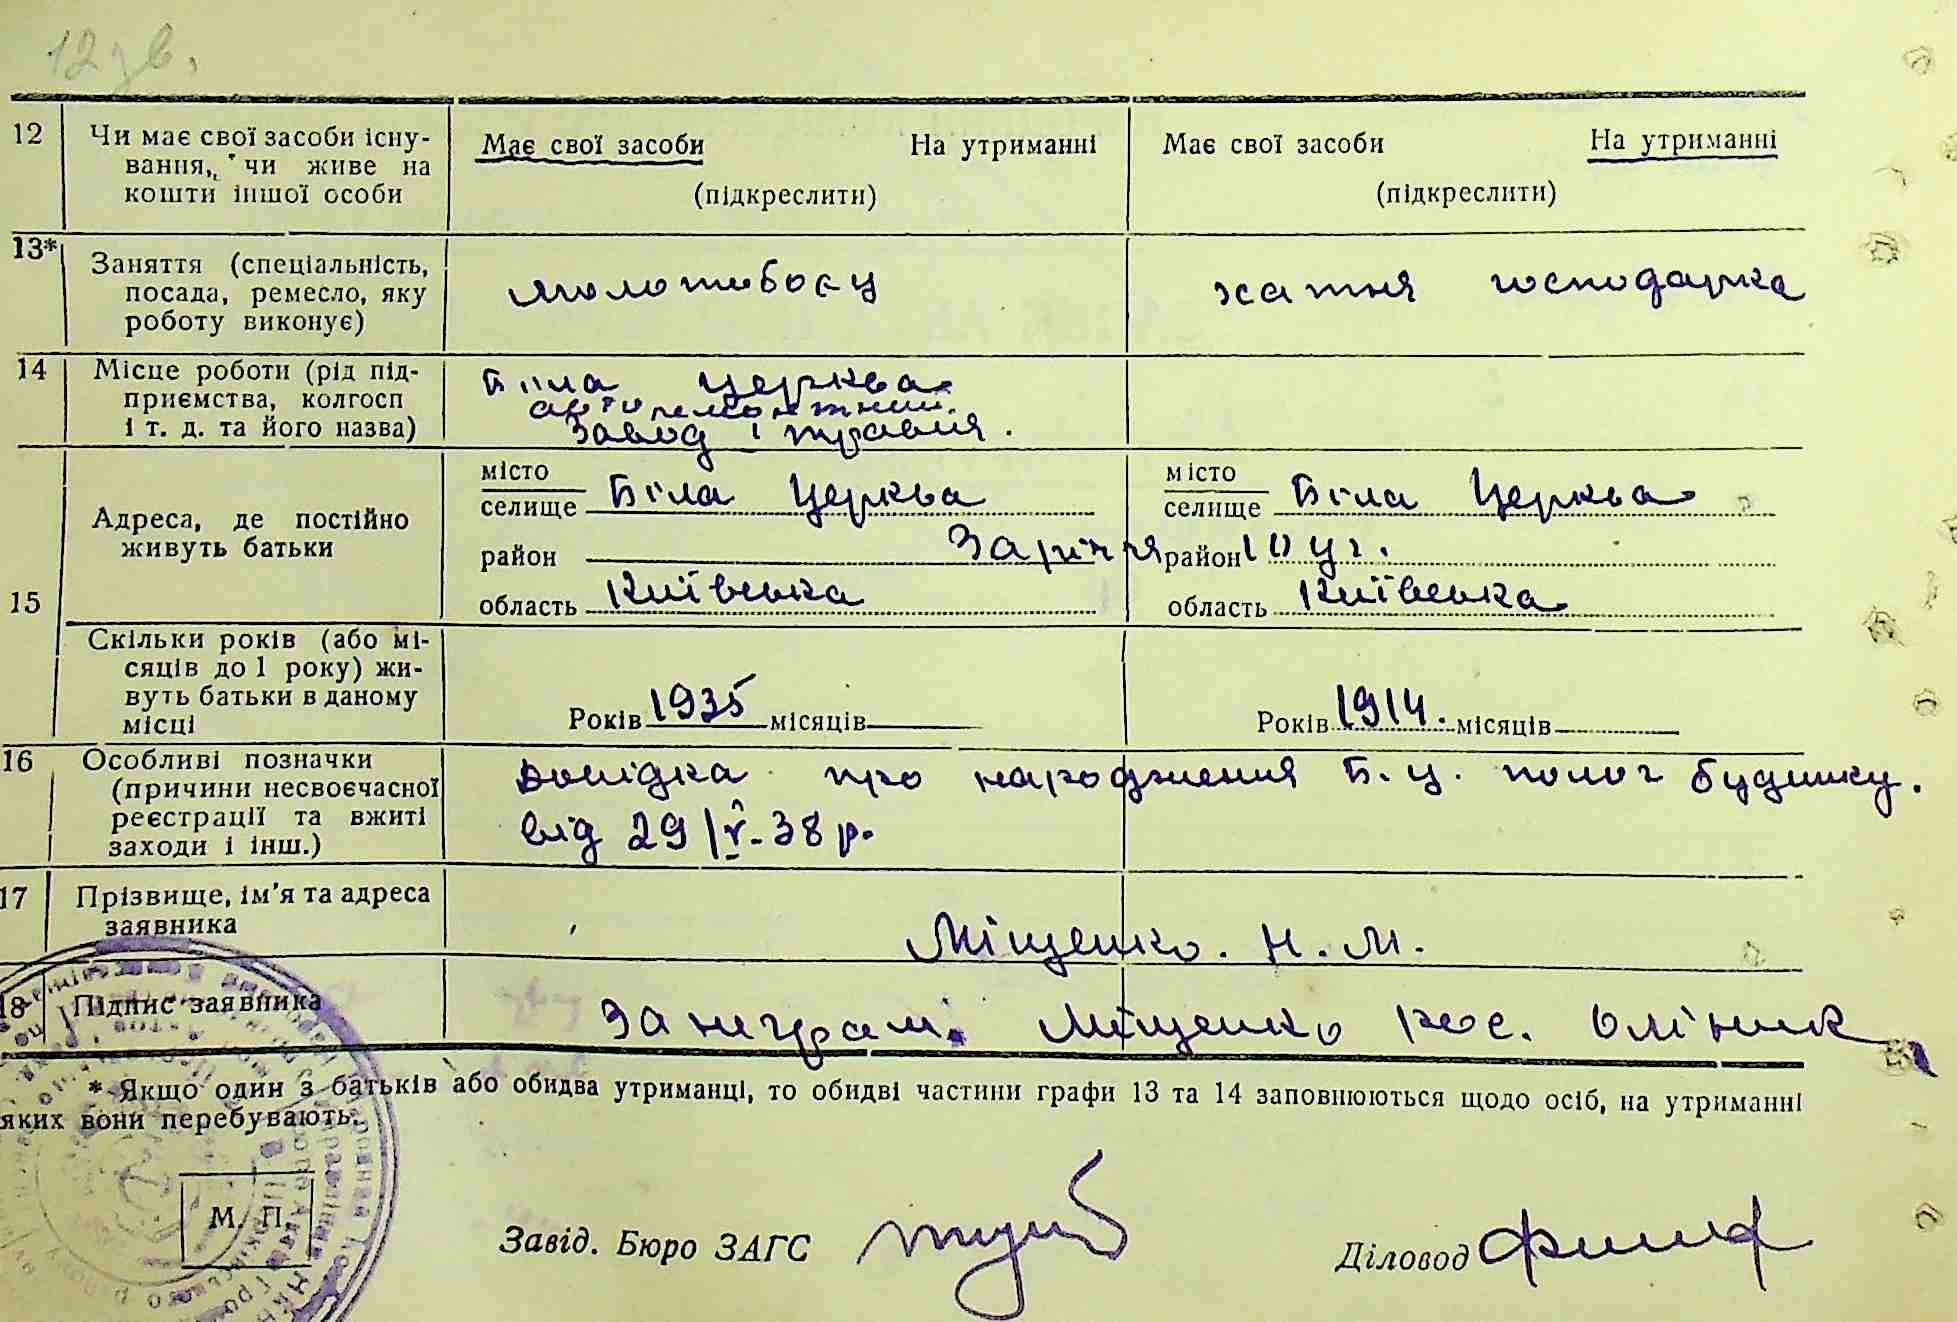 12 зв.
12 Чи має свої засоби існу- Має свої засоби На утриманні Має свої засоби На утриманні
вання, чи живе на
кошти іншої особи (підкреслити) (підкреслити)
13* Заняття (спеціальність,
посада, ремесло, яку молотобоєц хатня господарка
роботу виконує)
14 Місце роботи (рід під- Біла Церква
приємства, колгосп авторемонтний
і т. д. та його назва) Завод 1 травня.
місто місто
селище Біла Церква селище Біла Церква
Адреса, де постійно
живуть батьки район Заріччя район
область Київська область Київська
15
Скільки років (або мі-
сяців до 1 року) жи-
вуть батьки в даному
місці Років 1935 місяців Років 1914. місяців
16 Особливі позначки Довідка про народження Б.Ц. полог будинку.
(причини несвоєчасної
реєстрації та вжиті від 29/IV-38 р.
заходи і інш.)
17 Прізвище, ім'я та адреса
заявника Міщенко. Н. М.
18 Підпис заявника За неграм. Міщенко рос. Олійник
* Якщо один з батьків або обидва утриманці, то обидві частини графи 13 та 14 заповнюються щодо осіб, на утриманні
яких вони перебувають.
М. П.
Завід. Бюро ЗАГС Діловод